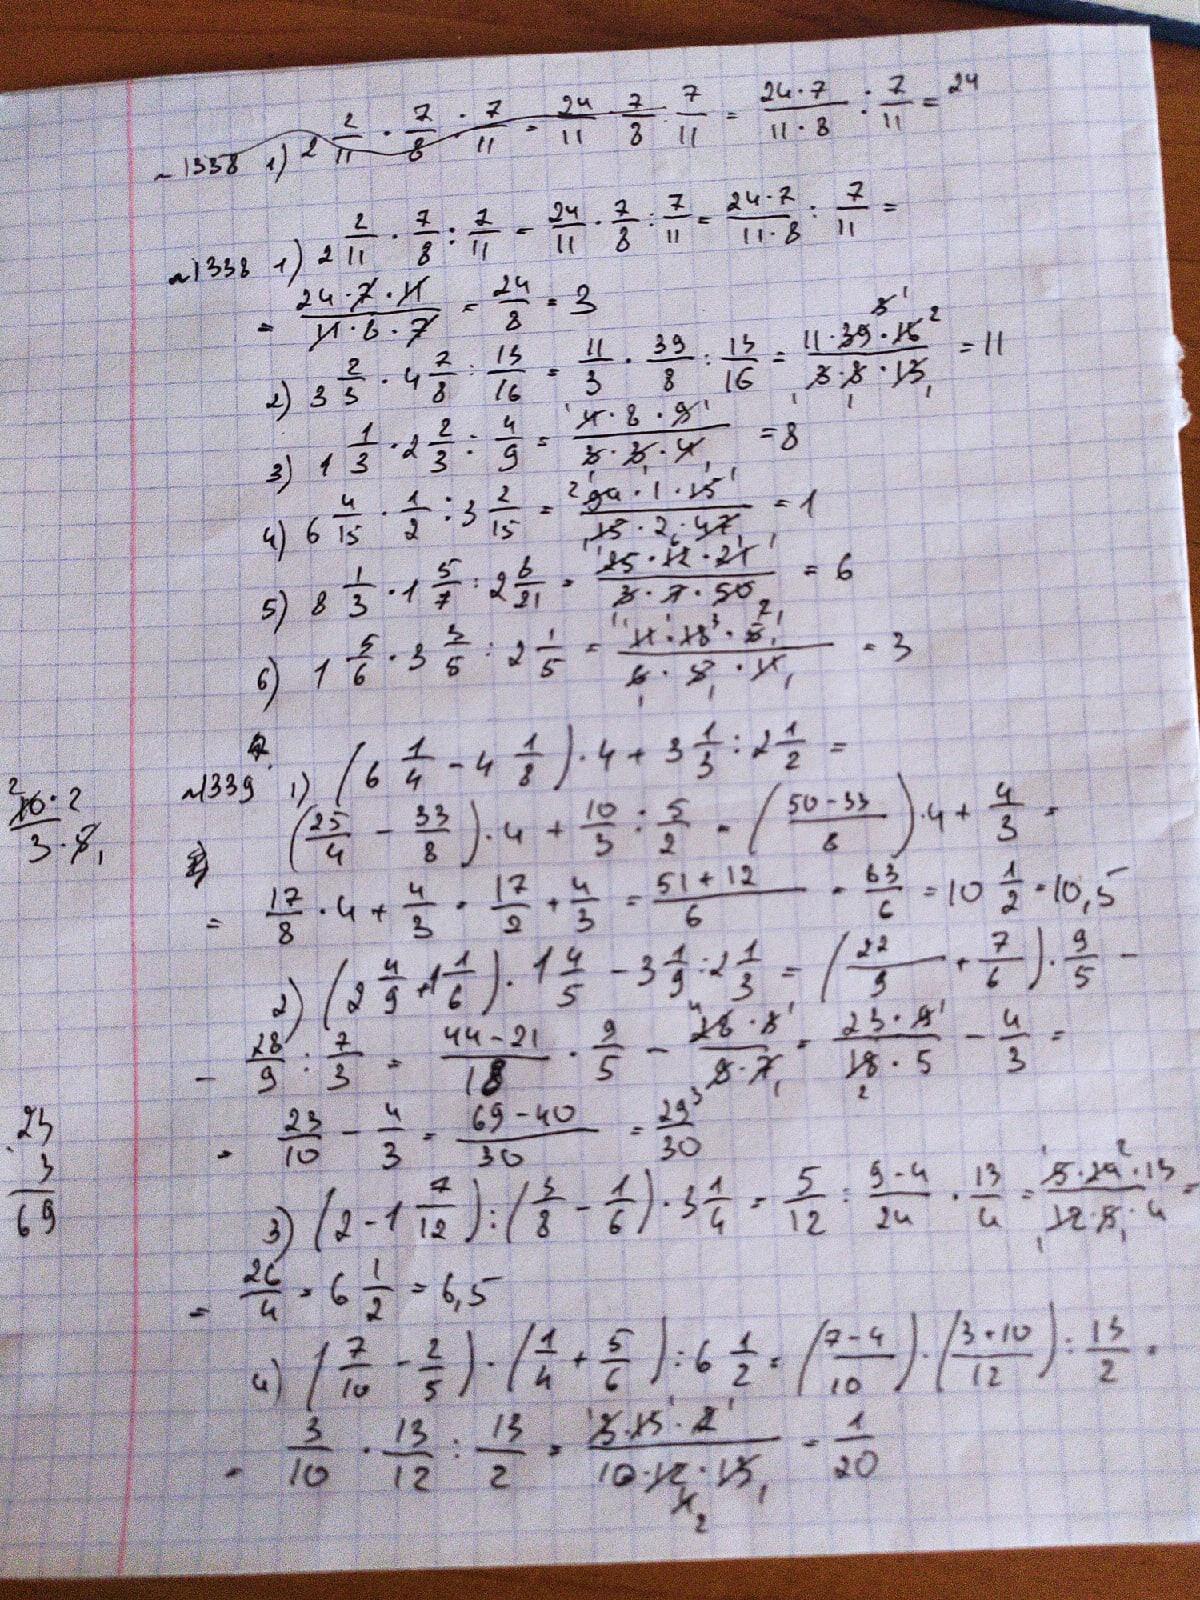 ~1338 1) 2 2/11 · 7/8 · 7/11 = 24/11 7/8 : 7/11 = 24·7/11·8 : 7/11 = 24
~1338 1) 2 2/11 · 7/8 : 7/11 = 24/11 · 7/8 : 7/11 = 24·7/11·8 : 7/11 =
= 24·7·11/11·8·7 = 24/8 = 3
2) 3 2/3 · 4 7/8 : 13/16 = 11/3 · 39/8 : 13/16 = 11·39·16/3·8·13 = 11
3) 1 1/3 · 2 2/3 : 4/9 = 4·8·9/3·3·4 = 8
4) 6 4/15 · 1/2 : 3 2/15 = 94·1·15/15·2·47 = 1
5) 8 1/3 · 1 5/7 : 2 8/21 = 25·12·21/3·7·50 = 6
6) 1 5/6 · 3 3/5 : 2 1/5 = 11·18·5/6·5·11 = 3
~1339 1) (6 1/4 - 4 1/8) · 4 + 3 1/3 : 2 1/2 =
(25/4 - 33/8) · 4 + 10/3 : 5/2 = (50-33/8) · 4 + 4/3 =
10·2/3·5
= 17/8 · 4 + 4/3 = 17/2 + 4/3 = 51+12/6 = 63/6 = 10 1/2 = 10,5
2) (2 4/9 + 1 1/6) · 1 4/5 - 3 1/9 : 2 1/3 = (22/9 + 7/6) · 9/5 -
- 28/9 : 7/3 = 44-21/18 · 9/5 - 28·3/9·7 = 23·9/18·5 - 4/3 =
= 23/10 - 4/3 = 69-40/30 = 29/30
23
3
69
3) (2 - 1 7/12) : (3/8 - 1/6) · 3 1/4 = 5/12 : 9-4/24 · 13/4 = 5·24·13/12·5·4 =
= 26/4 = 6 1/2 = 6,5
4) (7/10 - 2/5) · (1/4 + 5/6) : 6 1/2 = (7-4/10) · (3+10/12) : 13/2 =
= 3/10 · 13/12 : 13/2 = 3·13·2/10·12·13 = 1/20